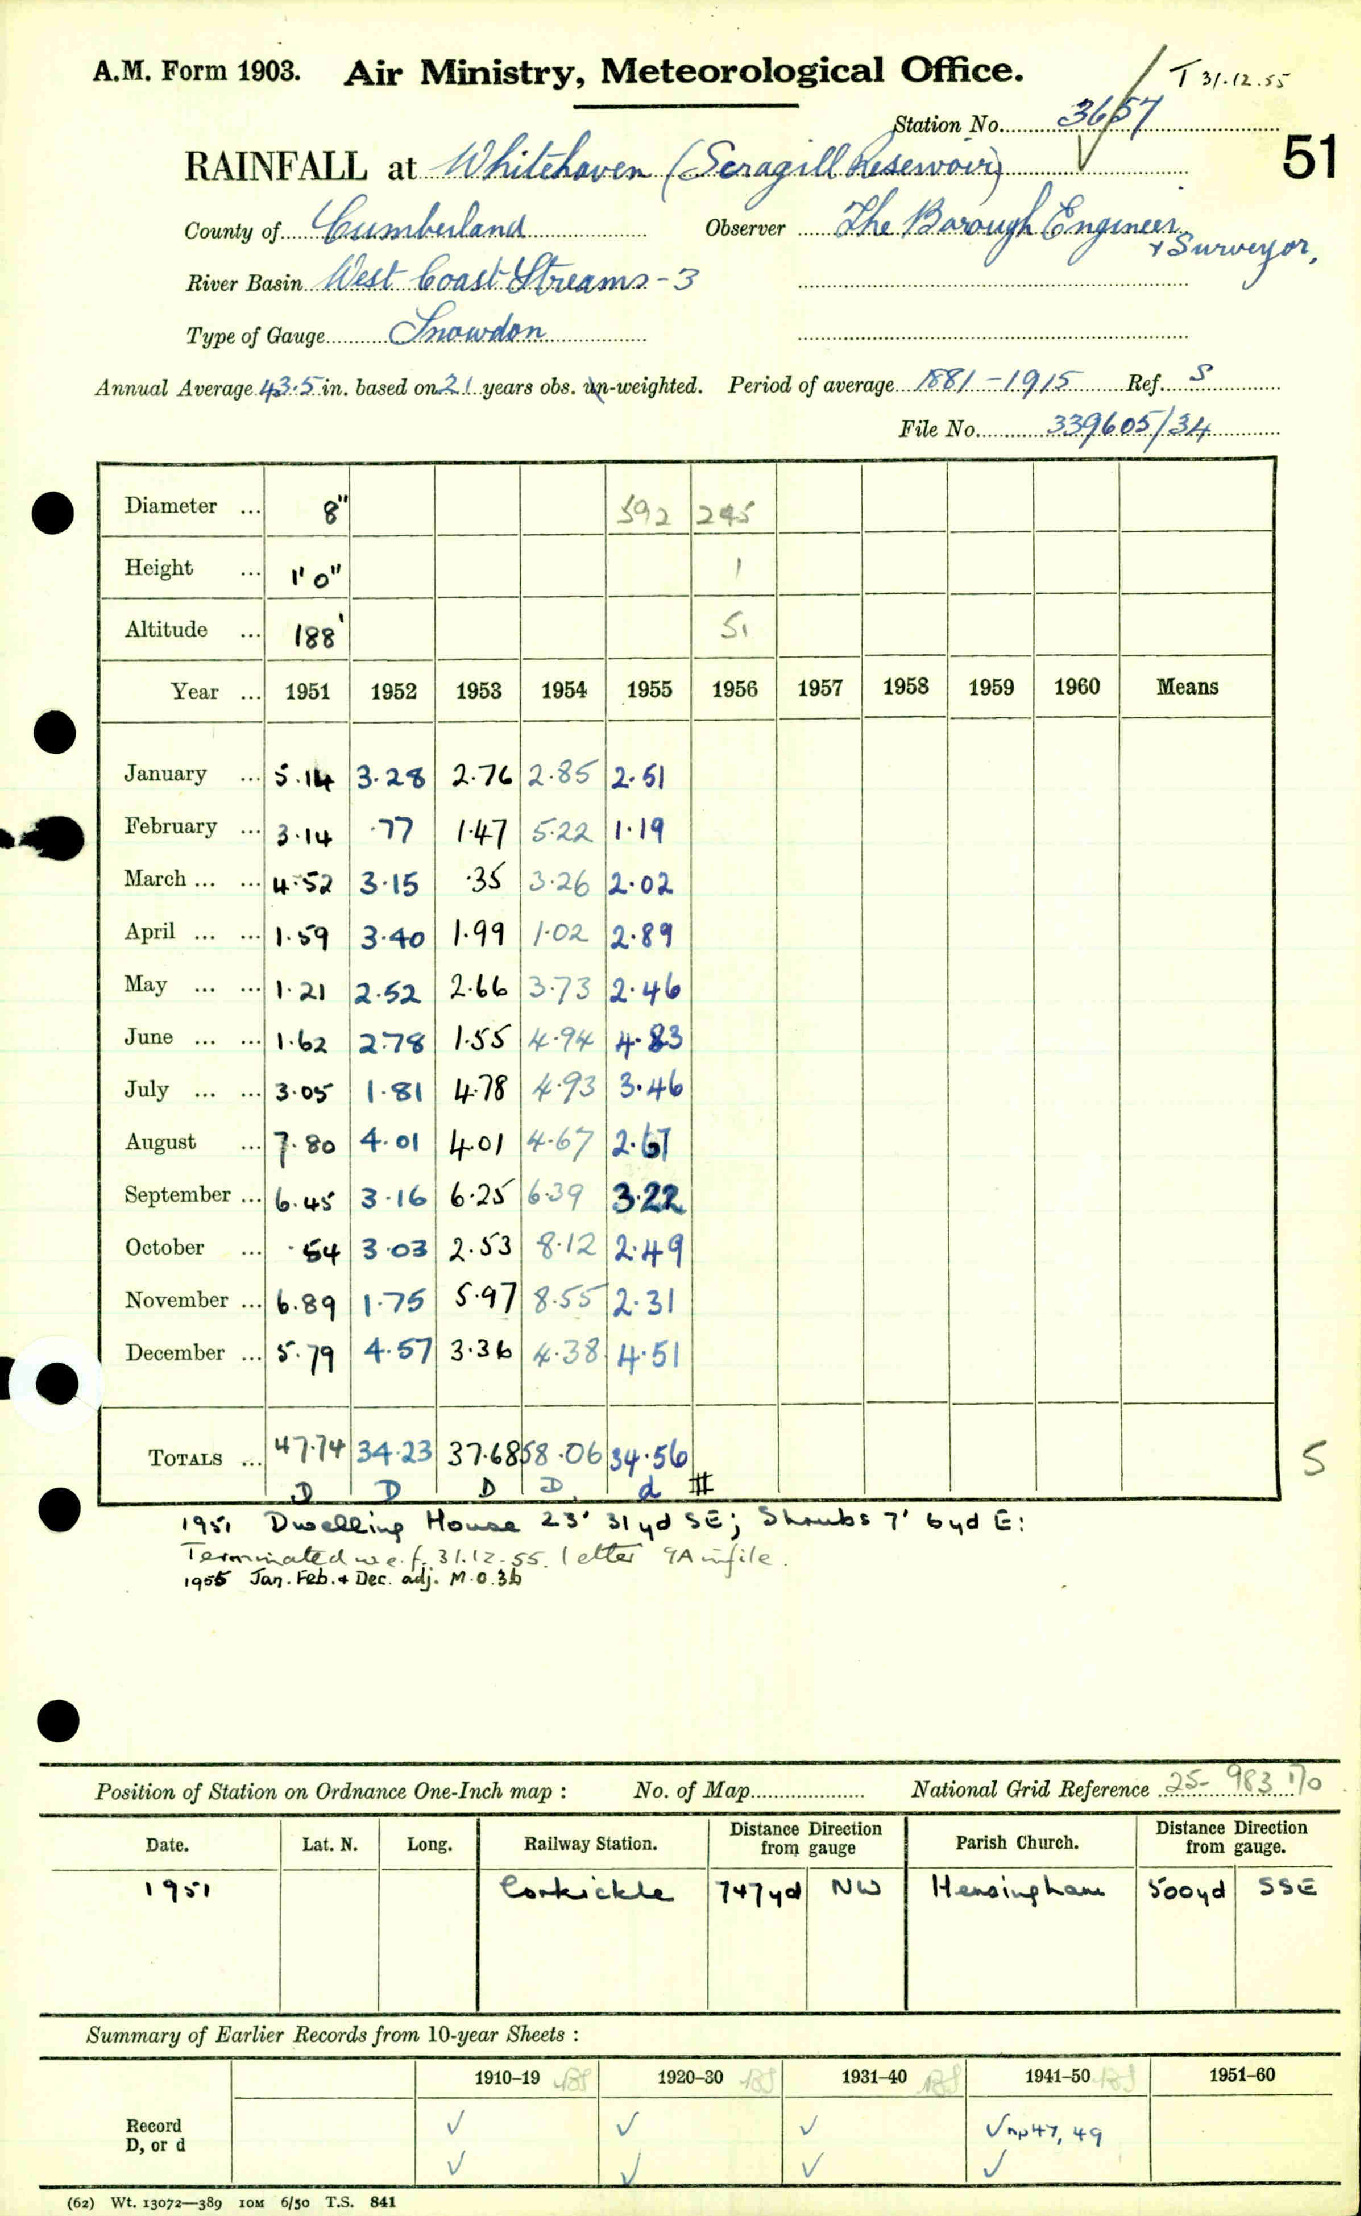 A.M. Form 1903. Air Ministry, Meteorological Office. T 31.12.55
Station No. 3657
RAINFALL at Whitehaven (Scragill Reservoir) 51
County of Cumberland Observer The Borough Engineer
+ Surveyor,
River Basin West Coast Streams - 3
Type of Gauge Snowdon
Annual Average 43.5 in. based on 21 years obs. un-weighted. Period of average 1881-1915 Ref. S
File No. 339605/34
Diameter ... 8" 592 245
Height ... 1' 0" 1
Altitude ... 188' 51
Year ... 1951 1952 1953 1954 1955 1956 1957 1958 1959 1960 Means
January ... 5.14 3.28 2.76 2.85 2.51
February ... 3.14 .77 1.47 5.22 1.19
March ... ... 4.52 3.15 .35 3.26 2.02
April ... ... 1.59 3.40 1.99 1.02 2.89
May ... ... 1.21 2.52 2.66 3.73 2.46
June ... ... 1.62 2.78 1.55 4.94 4.83
July ... ... 3.05 1.81 4.78 4.93 3.46
August ... 7.80 4.01 4.01 4.67 2.67
September ... 6.45 3.16 6.25 6.39 3.22
October ... .54 3.03 2.53 8.12 2.49
November ... 6.89 1.75 5.97 8.55 2.31
December ... 5.79 4.57 3.36 4.38 4.51
TOTALS ... 47.74 34.23 37.68 58.06 34.56 5
D D D D d #
1951 Dwelling House 23' 31yd SE; Shrubs 7' 6yd E:
Terminated w.e.f. 31.12.55. letter 9A in file.
1955 Jan. Feb. + Dec. adj. M.O.3b
Position of Station on Ordnance One-Inch map : No. of Map National Grid Reference 25- 983 170
Date. Lat. N. Long. Railway Station. Distance from Direction gauge Parish Church. Distance from Direction gauge.
1951 Corkickle 747yd NW Hensingham 500yd SSE
Summary of Earlier Records from 10-year Sheets :
1910-19 1920-30 1931-40 1941-50 1951-60
Record ✓ ✓ ✓ ✓ np47, 49
D, or d ✓ ✓ ✓ ✓
(62) Wt. 13072—389 10M 6/50 T.S. 841